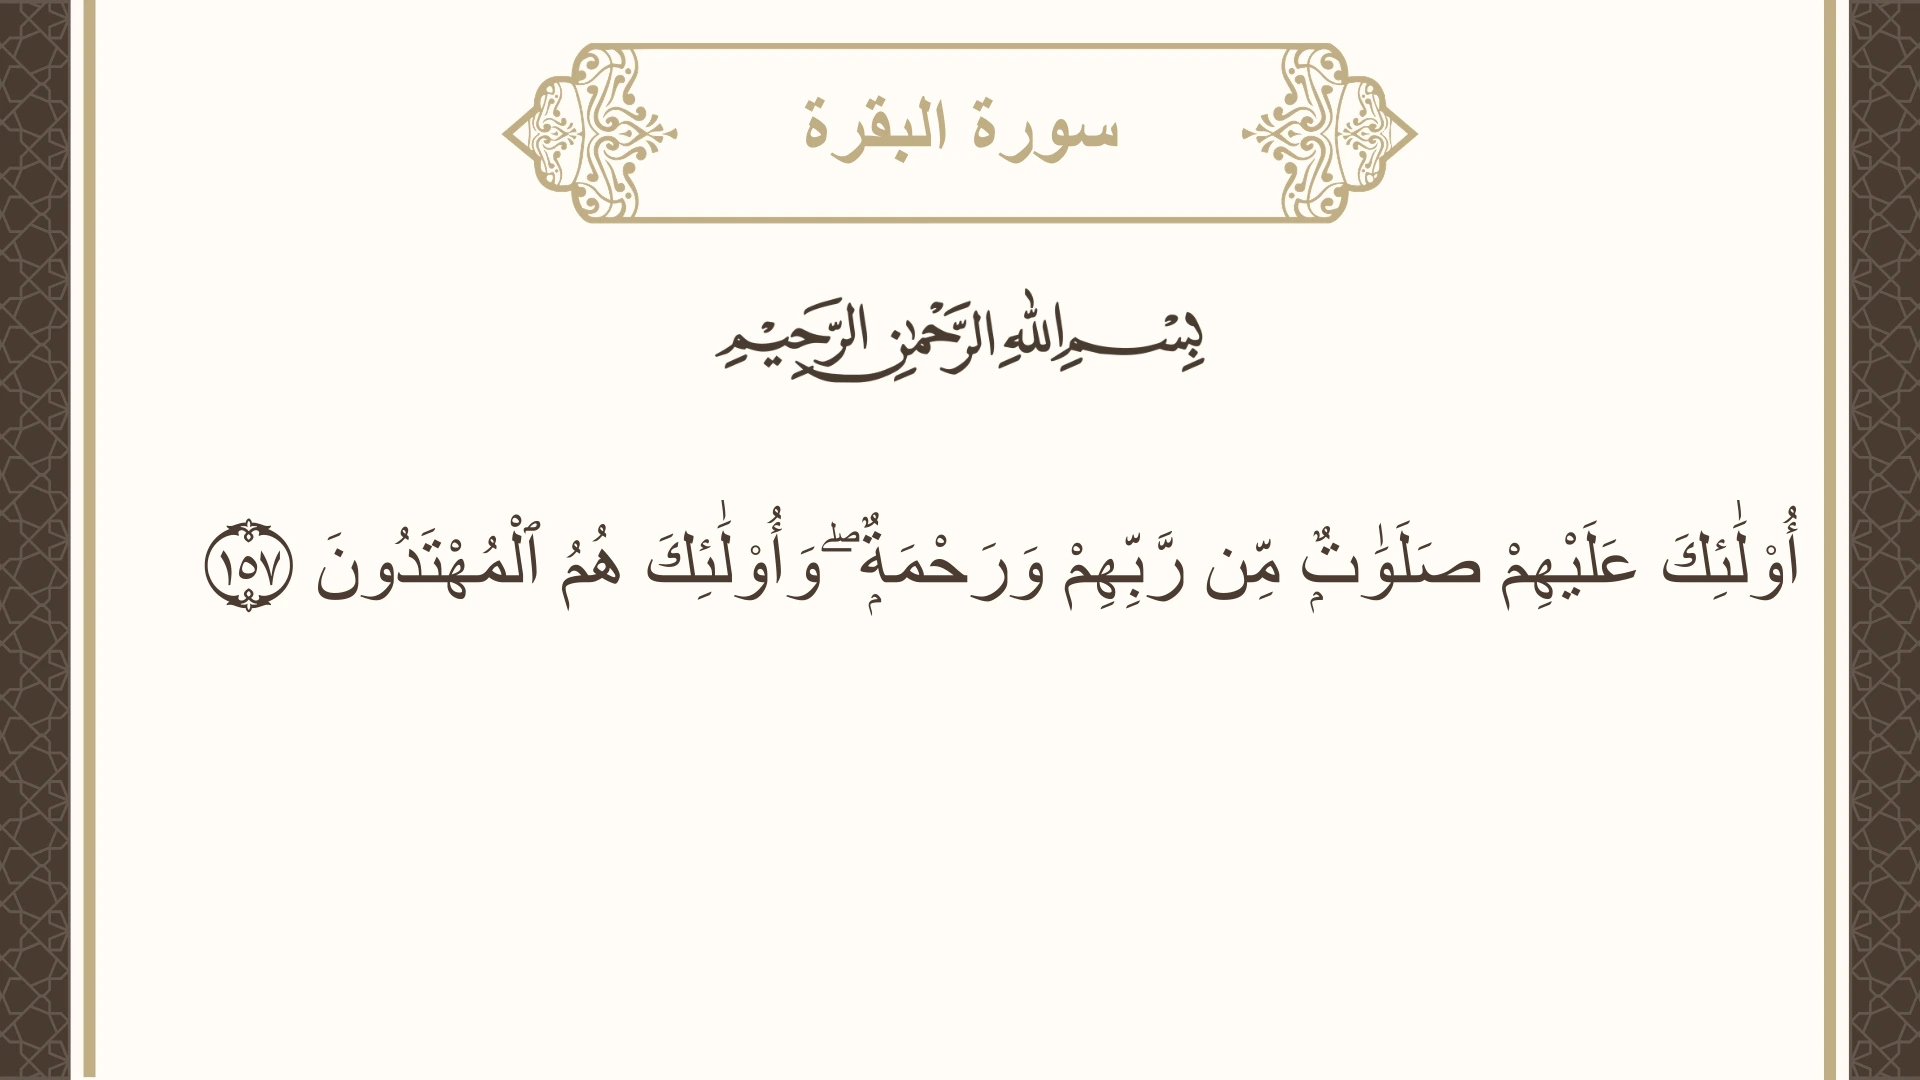 سورة البقرة
بِسْمِ اللهِ الرَّحْمٰنِ الرَّحِيْمِ
أُوْلَٰٓئِكَ عَلَيْهِمْ صَلَوَٰتٌۭ مِّن رَّبِّهِمْ وَرَحْمَةٌۭ ۖ وَأُوْلَٰٓئِكَ هُمُ ٱلْمُهْتَدُونَ ١٥٧